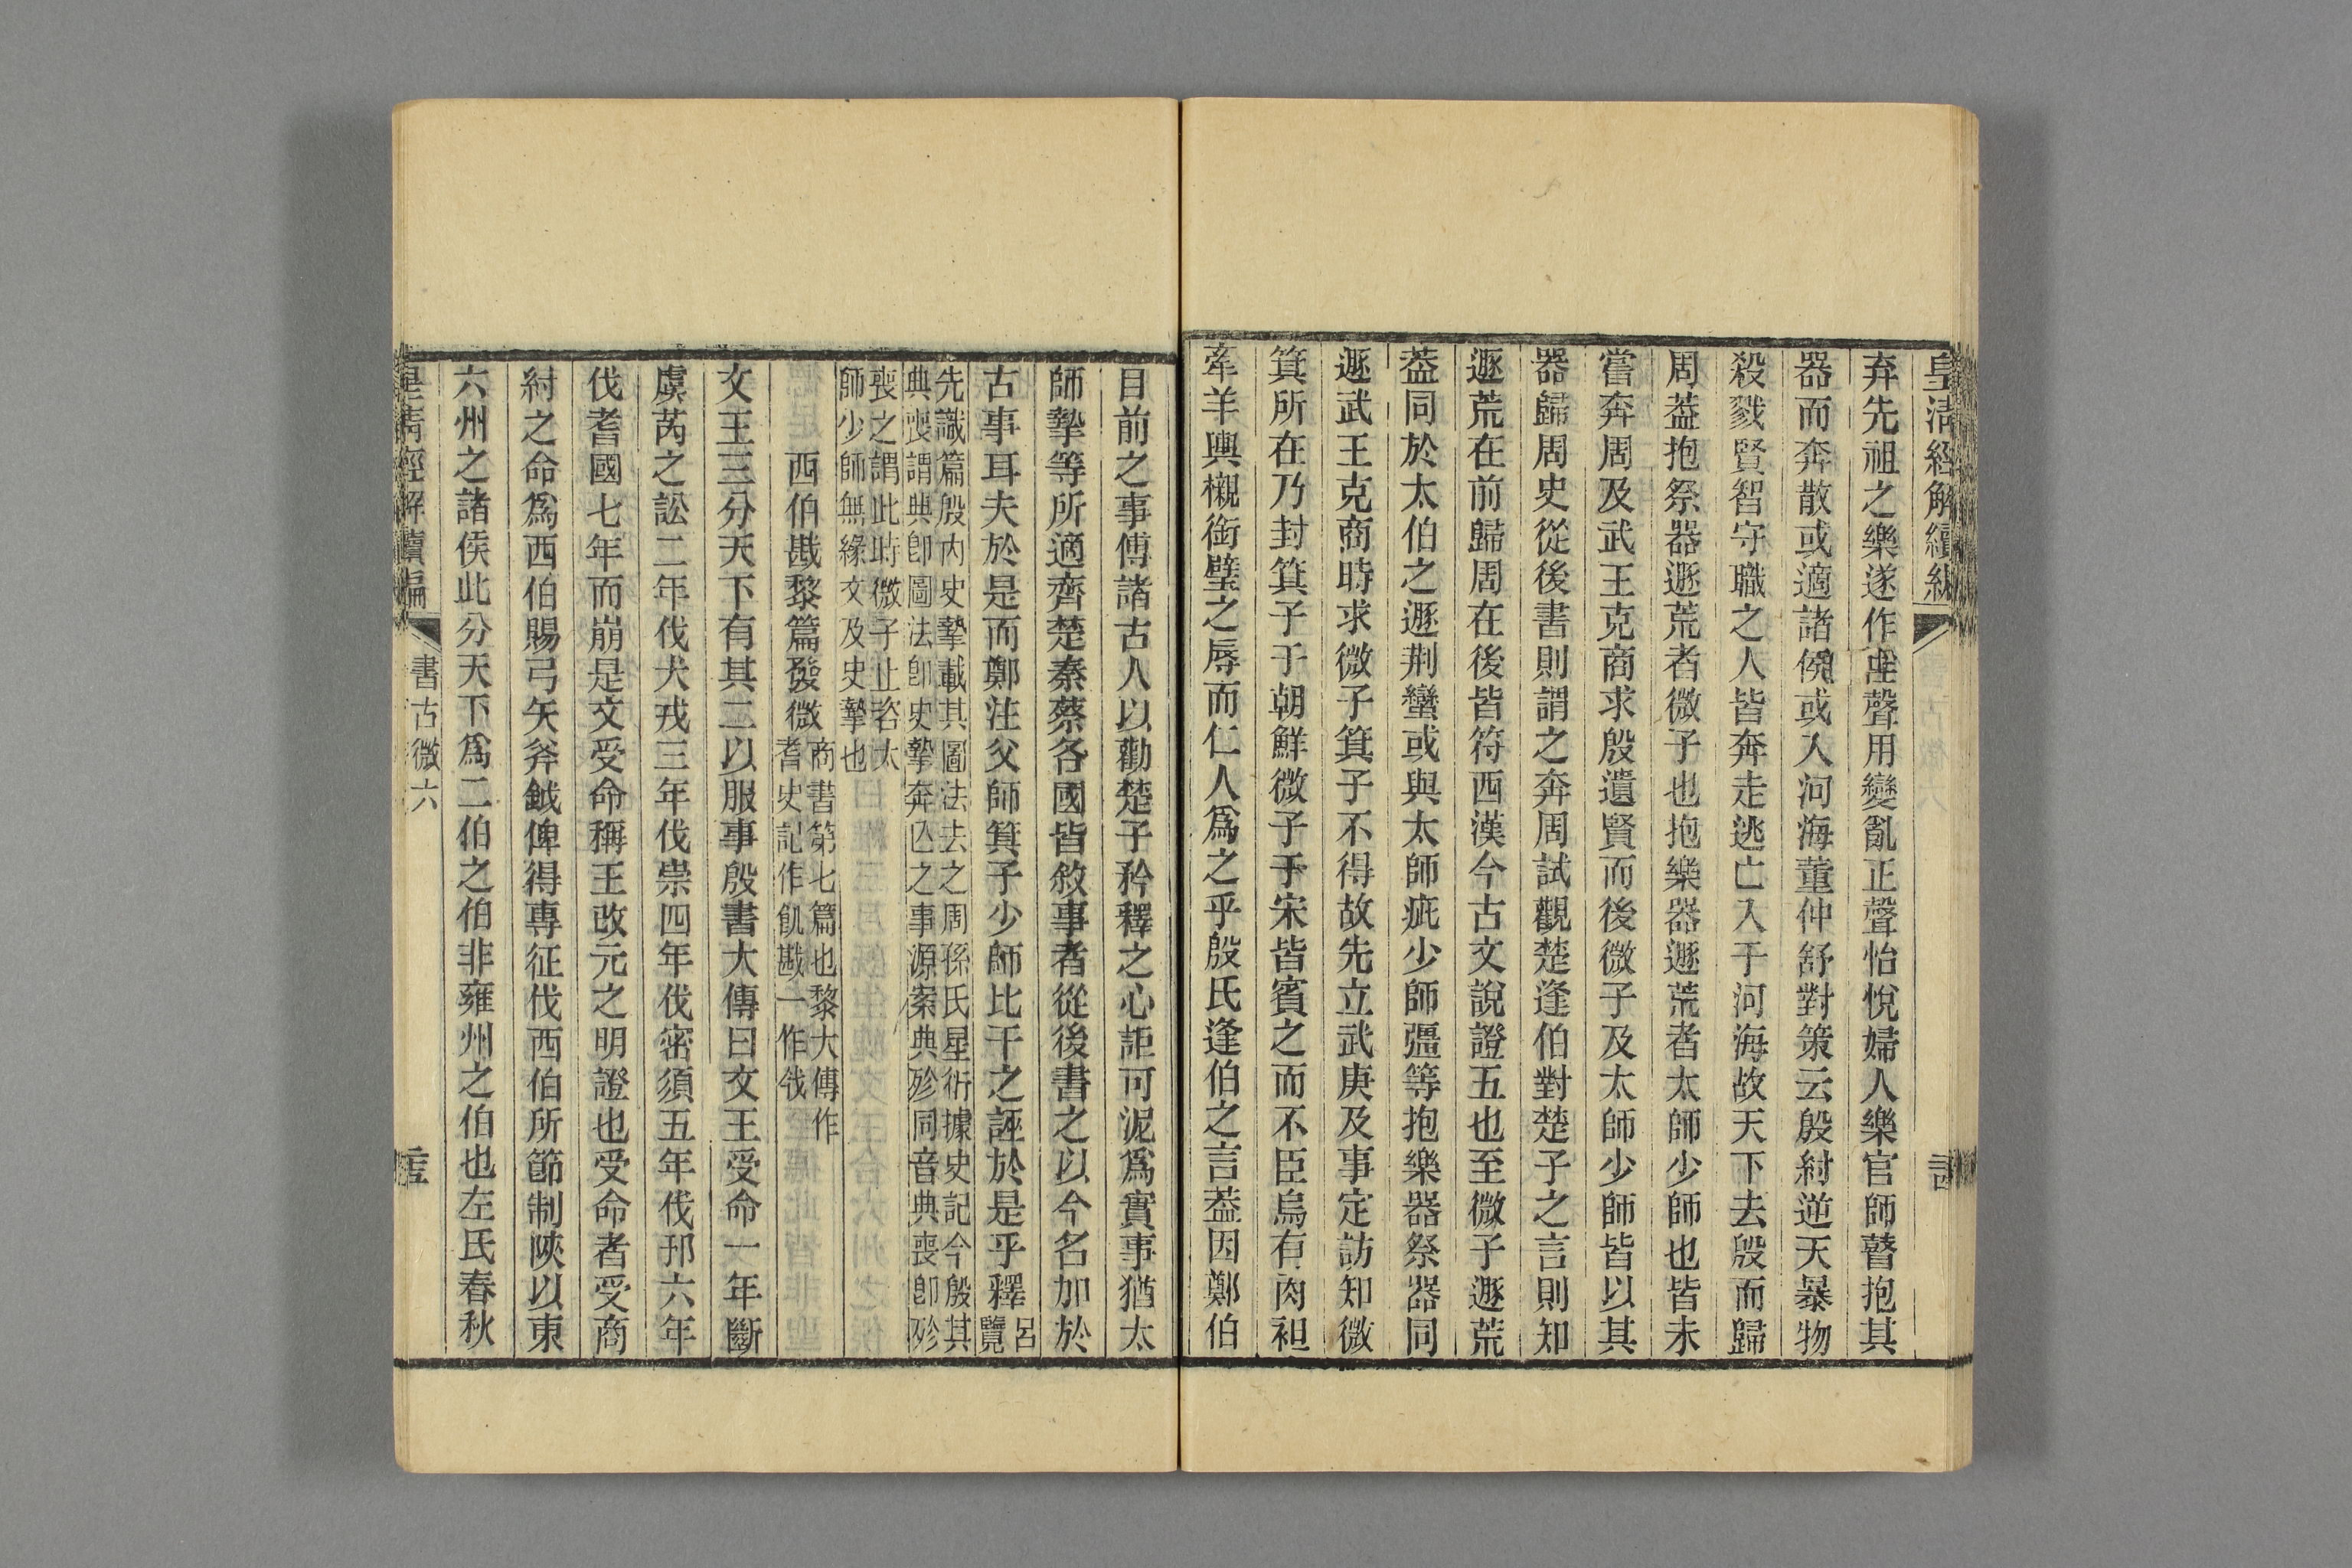 皇清經解續編
弃先祖之樂遂作淫聲用變亂正聲怡悅婦人樂官師瞽抱其
器而奔散或適諸侯或入河海董仲舒對策云殷紂逆天暴物
殺戮賢智守職之人皆奔走逃亡入于河海故天下去殷而歸
周葢抱祭器遯荒者微子也抱樂器遯荒者太師少師也皆未
嘗奔周及武王克商求殷遺賢而後微子及太師少師皆以其
器歸周史從後書則謂之奔周試觀楚逢伯對楚子之言則知
遯荒在前歸周在後皆符西漢今古文說證五也至微子遯荒
葢同於太伯之遯荆蠻或與太師疵少師彊等抱樂器祭器同
遯武王克商時求微子箕子不得故先立武庚及事定訪知微
箕所在乃封箕子于朝鮮微子于宋皆賓之而不臣烏有肉袒
牽羊輿櫬銜璧之辱而仁人爲之乎殷氏逢伯之言葢因鄭伯
目前之事傅諸古人以勸楚子矜釋之心詎可泥爲實事猶太
師摯等所適齊楚秦蔡各國皆敘事者從後書之以今名加於
古事耳夫於是而鄭注父師箕子少師比干之誣於是乎釋呂覽
先識篇殷內史摯載其圖法去之周孫氏星衍據史記今殷其
典喪謂典卽圖法卽史摯奔匹之事源案典殄同音典喪卽殄
喪之謂此時微子止咨太
師少師無緣文及史摯也
西伯戡黎篇發微商書第七篇也黎大傳作
耆史記作飢戡一作㦰
文王三分天下有其二以服事殷書大傳曰文王受命一年斷
虞芮之訟二年伐犬戎三年伐崇四年伐密須五年伐邘六年
伐耆國七年而崩是文受命稱王改元之明證也受命者受商
紂之命爲西伯賜弓矢斧鉞俾得專征伐西伯所節制陝以東
六州之諸侯此分天下爲二伯之伯非雍州之伯也左氏春秋
皇清經解續編 書古微六